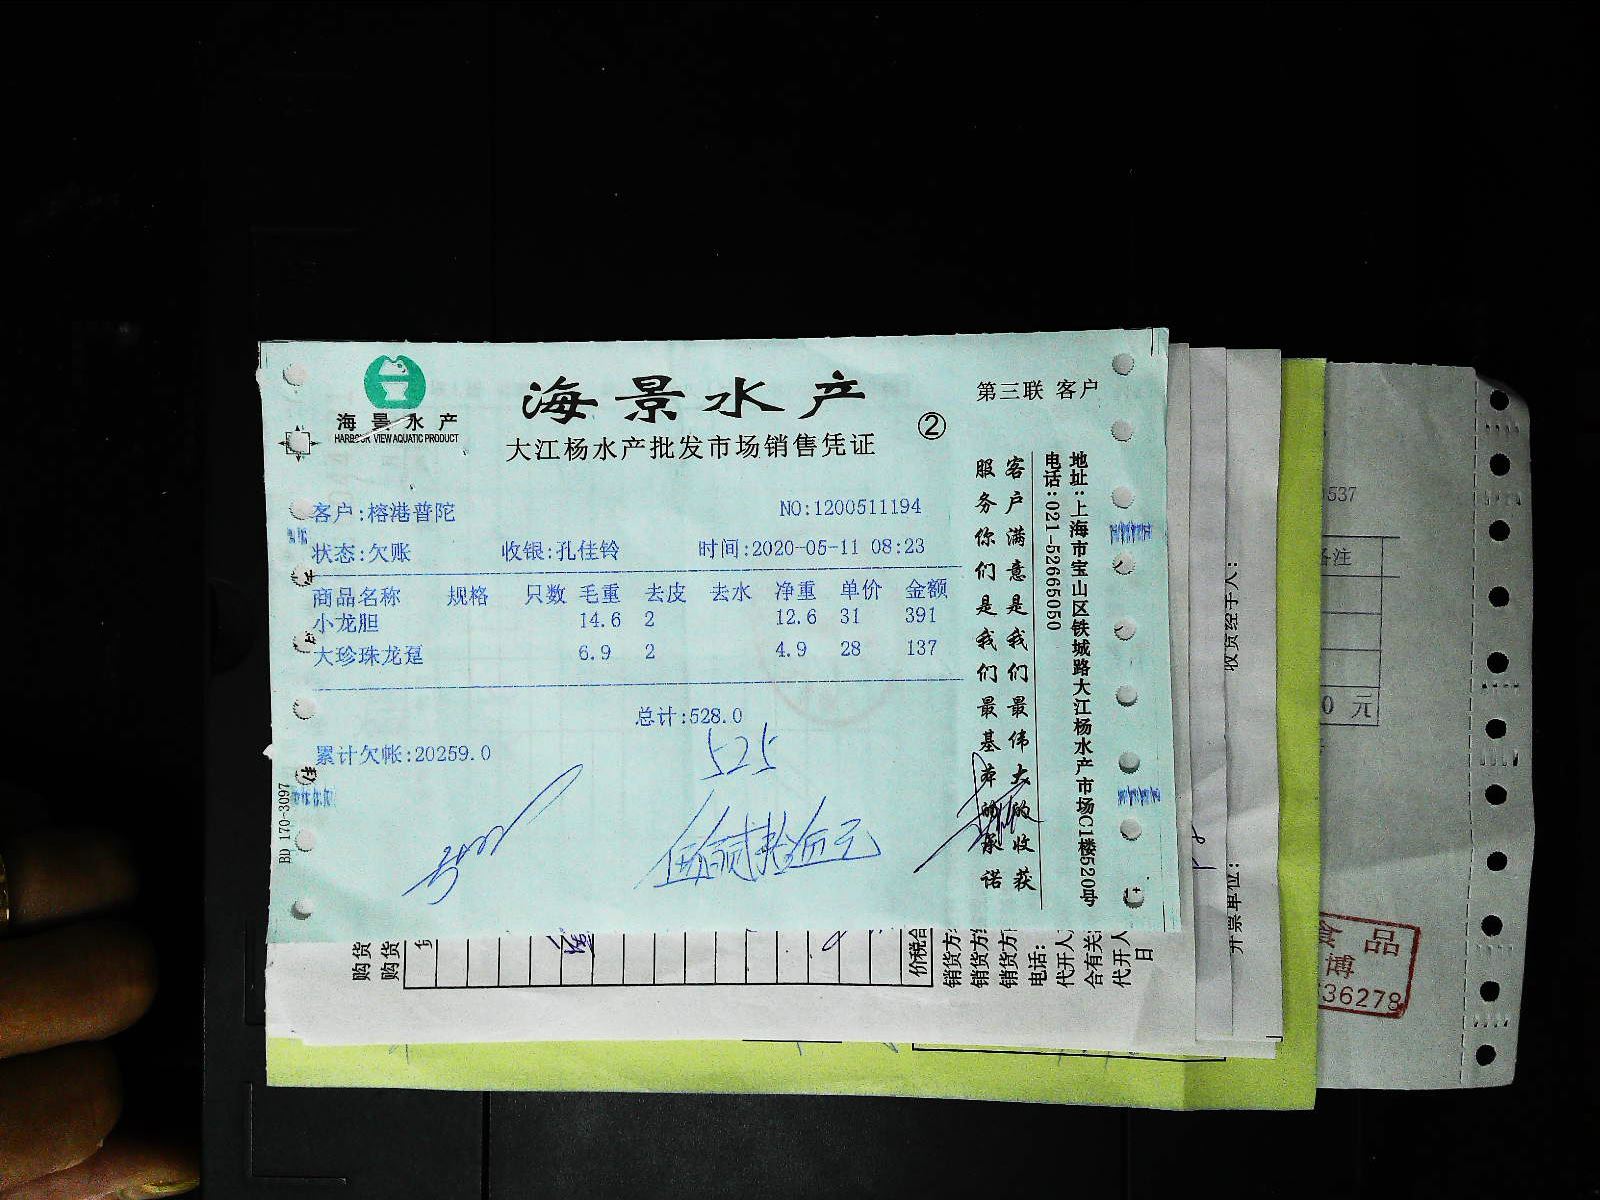 海景水产
HARBOUR VIEW AQUATIC PRODUCT
海景水产
大江杨水产批发市场销售凭证
②
第三联 客户
客户:榕港普陀
NO:1200511194
状态:欠账
收银:孔佳铃
时间:2020-05-11 08:23
商品名称 规格 只数 毛重 去皮 去水 净重 单价 金额
小龙胆 14.6 2 12.6 31 391
大珍珠龙趸 6.9 2 4.9 28 137
总计:528.0
525
累计欠帐:20259.0
伍佰贰拾伍元
BD 170-3097
客户满意是我们最伟大的收获
服务你们是我们最基本的承诺
地址:上海市宝山区铁城路大江杨水产市场C1楼520号
电话:021-52665050
购货
购货
价税合
销货方
销货方
销货方
电话:
代开人
含有关
代开人
日
收货经手人:
开票单位:
537
备注
0 元
食品
博
36278